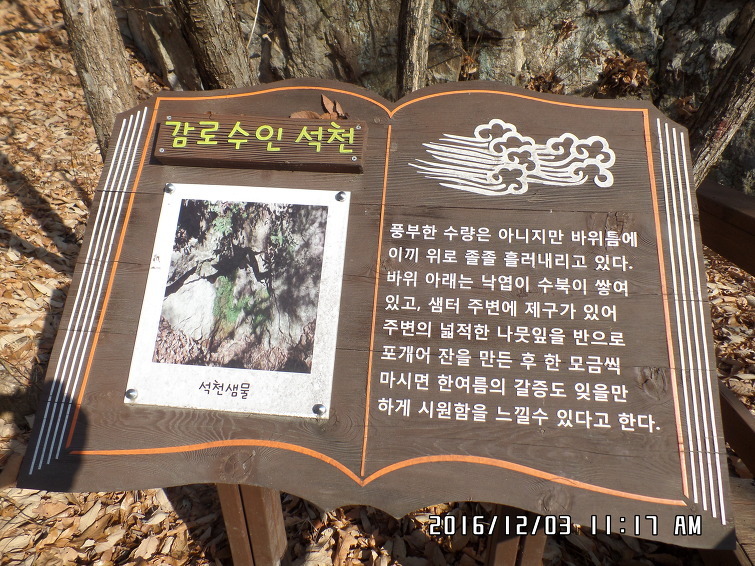 감로수인 석천
석천샘물
풍부한 수량은 아니지만 바위틈에
이끼 위로 졸졸 흘러내리고 있다.
바위 아래는 낙엽이 수북이 쌓여
있고, 샘터 주변에 제구가 있어
주변의 넓적한 나뭇잎을 반으로
포개어 잔을 만든 후 한 모금씩
마시면 한여름의 갈증도 잊을만
하게 시원함을 느낄수 있다고 한다.
2016/12/03 11:17 AM